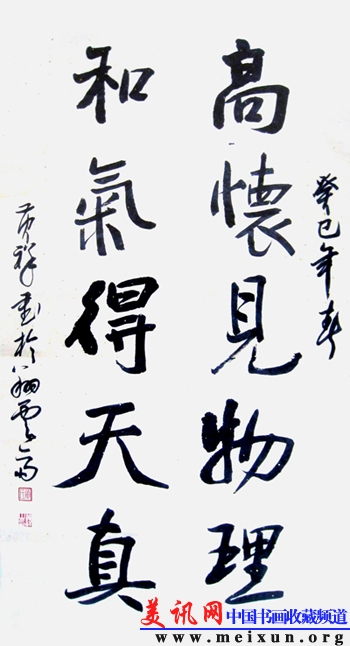 癸巳年春
高懷見物理
和氣得天真
書於翔雲齋
美讯网 中国书画收藏频道
www.meixun.org